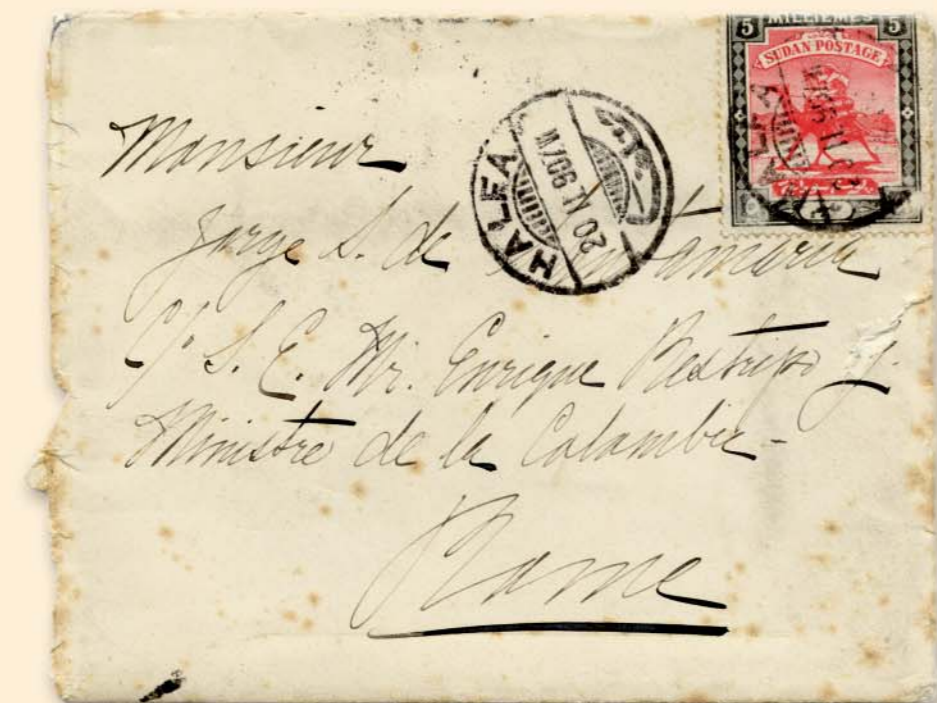 5 MILLIEMES 5
SUDAN POSTAGE
HALFA
20 N 1906
Monsieur
Jorge S. de Santamaria
S. E. Mr. Enrique Restrepo G.
Ministre de la Colombie-
Rome